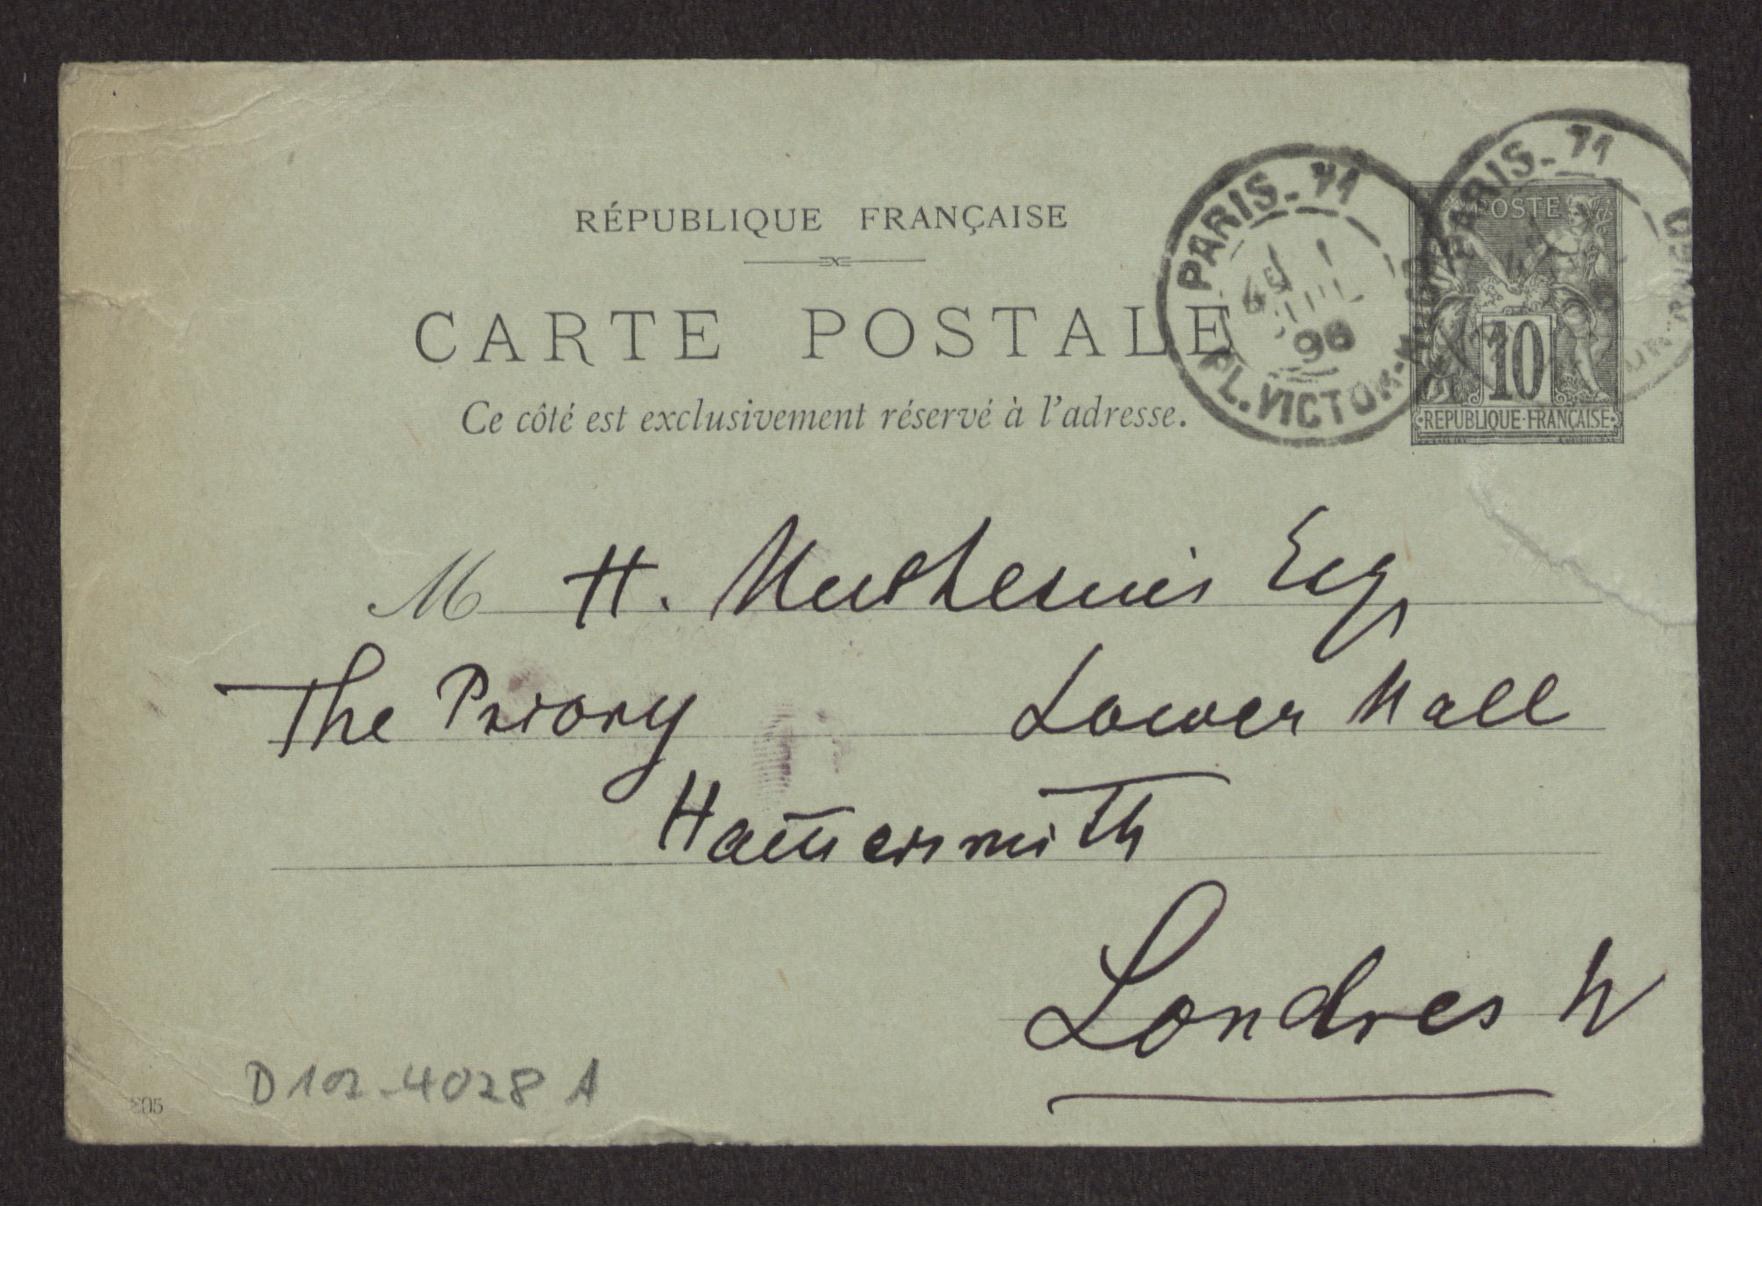 RÉPUBLIQUE FRANÇAISE
CARTE POSTALE
Ce côté est exclusivement réservé à l'adresse.
PARIS_71
4E
JUIL
98
PL. VICTOR-HUGO
PARIS_71
POSTE
10
REPUBLIQUE·FRANÇAISE
M H. Muthesius Esq.
The Priory Lower Mall
Ham̅ersmith
Londres W
D102-4028 A